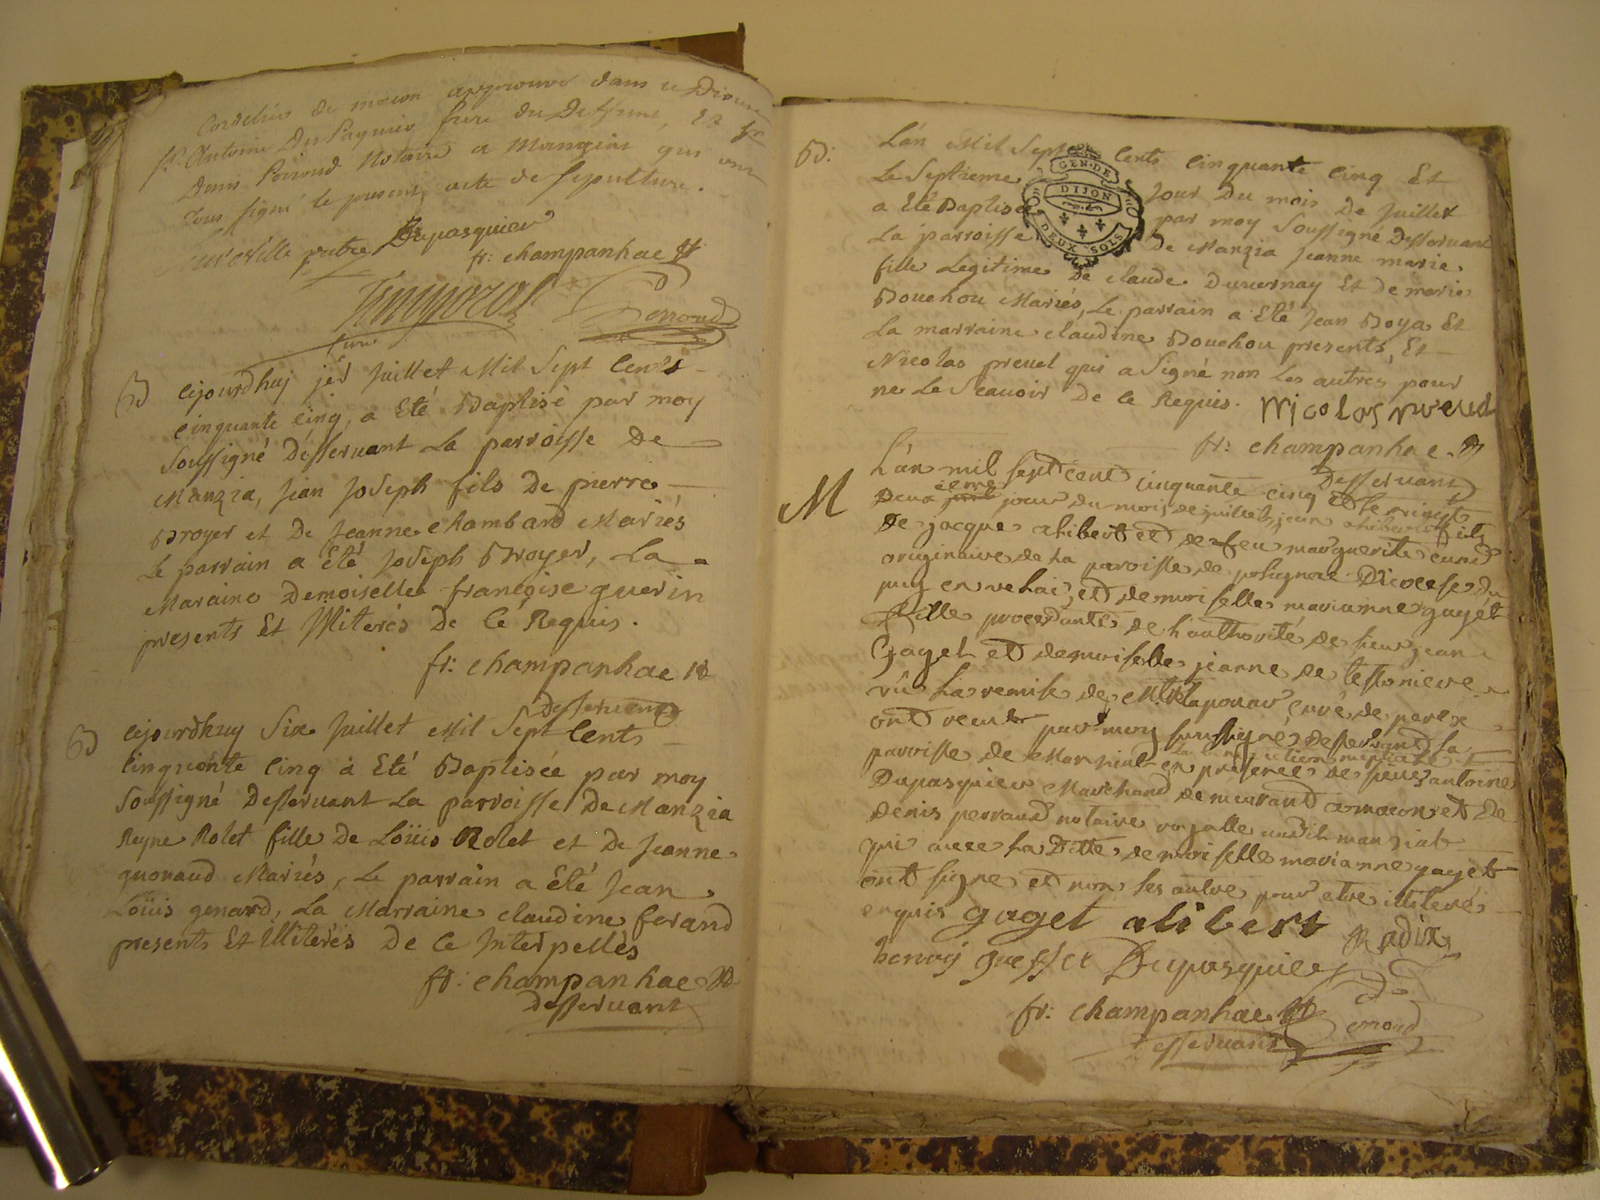 Cordelier de macon approuvé dans ce Diocese
sr. Antoine Du Paquier frere du Defunt, Et sr
Denis Perroud Notaire a Manziat qui ont
tous signé le present acte de sepulture.
prêtre Dupasquier
fr: champanhac
Perroud
B ajourdhuj jer Juillet Mil Sept Cents
cinquante Cinq, a Eté Baptisé par moy
Soussigné Desservant La parroisse De
Manzia, Jean Joseph fils De pierre
Broyer et De Jeanne chambard Mariés
Le parrain a Eté Joseph Broyer, La
Maraine Demoiselle françoise guerin
presents Et Illiterés De Ce Requis.
fr: champanhac
Desservant
B ajourdhuy Six Juillet Mil Sept Cents
Cinquante Cinq à Eté Baptisée par moy
Soussigné Desservant La parroisse De Manzia
Reyne Rolet fille De Loüis Rolet et De Jeanne
gonaud Mariés, Le parrain a Eté Jean
Loüis genard, La Marraine claudine ferand
presents Et Illiterés De Ce Interpellés
fr: champanhac
Desservant
GEN. DE
DIJON
DEUX SOLS
B: L'an Mil Sept Cents Cinquante Cinq Et
Le Septieme Jour Du mois De Juillet
a Eté Baptisé par moy Soussigné Desservant
La parroisse De Manzia Jeanne marie
fille Legitime De claude Duvernay Et De marie
Bouchou Mariés, Le parrain a Eté Jean Boya Et
La marraine claudine Bouchou presents, Et
Nicolas preuel qui a Signé non Les autres pour
ne Le Scauoir De Ce Requis. Nicolas preuel
fr: champanhac
Desservant
M L'an mil sept cent cinquante cinq et le vingt
Deux jour du mois de juillet jean alibert fils
De jacque alibert et de feu marguerite
originaire de La paroisse de polignac Diocese du
puy en velai, et demoiselle marianne gayet
fille procedante de L'authorité de sieur jean
Gayet et demoiselle jeanne de tessoniere
vû La remise de curé de
ont receu par moy soussigné desservant La
paroisse de Manziat en presence de sieur antoine
Dupasquier Marchand demeurant a macon et De
Denis perroud notaire royalle audit manziat
qui avec La Ditte demoiselle marianne gayet
ont signe et non les autre pour etre illiterés
enquis gayet alibert Radix
benoij Dupasquier
fr: champanhac
Desservant